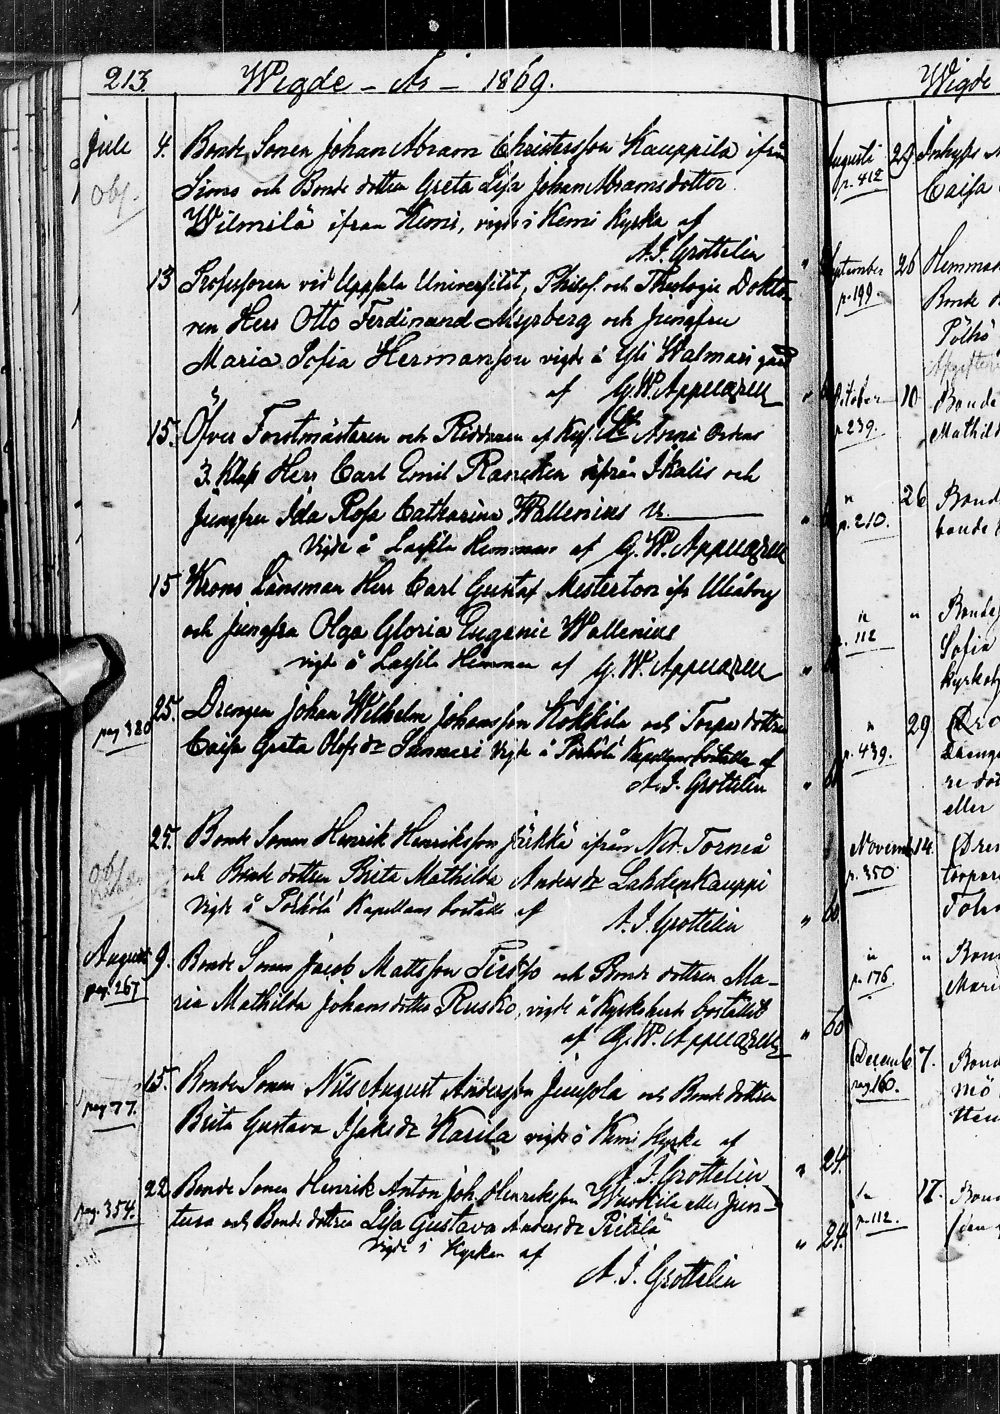 213. Wigde – År – 1869.
Juli 4. Bonde Sonen Johan Abram Christersson Kauppila ifrån
Obs. Simo och Bonde dottren Greta Lisa Johan Abrams dotter
Wilmilä ifrån Kemi, vigde i Kemi Kyrka af
A. J. Grottelin
13 Professoren vid Uppsala Universitet, Philos. och Theologie Dokto-
ren Herr Otto Ferdinand Myrberg och Jungfru
Maria Sofia Hermanson vigde å Yli Walmari gård
af G. W. Appelgren
15. Öfver Forstmästaren och Riddaren af Kejs. Stt Anna Ordens
3. Klass Herr Carl Emil Rancken ifrån Ikalis och
Jungfru Ida Rosa Catharina Wallenius
Vigde å Lassila Hemman af G. W. Appelgren
15 Krono Länsman Herr Carl Gustaf Mesterton ifr Uleåborg
och Jungfru Olga Gloria Eugenie Wallenius
vigde å Lassila Hemman af G. W. Appelgren
25. Drengen Johan Wilhelm Johansson Kokkila och Torpare dottren
pag 380 Caisa Greta Olofs dr Sunnari vigde å Pörhölä Kapellansbostället af
A. J. Grottelin " 60
25. Bonde Sonen Henrik Henriksson Jürkkä ifrån Ned. Torneå
Obs och Bonde dottren Brita Mathilda Anders dr Lahdenkauppi
Vigde å Pörhölä Kapellans boställe af A. J. Grottelin " 60
Augusti 9. Bonde Sonen Jacob Mattsson och Bonde dottren Ma-
pag. 267 ria Mathilda Johans dotter Rusko, vigde å Kyrkoherde bostället
af G. W. Appelgren " 60
15. Bonde Sonen Nils August Andersson Junsola och Bonde dottren
pag 77. Brita Gustava Isaks dr Karila vigde i Kemi Kyrka af
A. J. Grottelin " 24.
22. Bonde Sonen Henrik Anton Joh. Henriksson Wuokila eller Jun-
pag. 354. tura och Bonde dottren Lisa Gustava Anders dr Pietilä
Vigde i Kyrkan af " 24.
A. J. Grottelin
Wigde
Augusti 29 Inhyses
p. 412 Caisa
September 26 Hemman
p. 199. Bonde
Pölhö
October 10 Bonde
p 239. Mathild
" 26 Bond
p. 210. bonde
" " Bonde
p. 112 Sofia
Kyrko
" 29
p. 439. Dränge
re dot
eller
Novemb. 14. Dren
p. 350 torpare
" " Bond
p. 176 Mari
Decemb 7. Bond
pag 160. mö
" 17. Bond
p. 112.